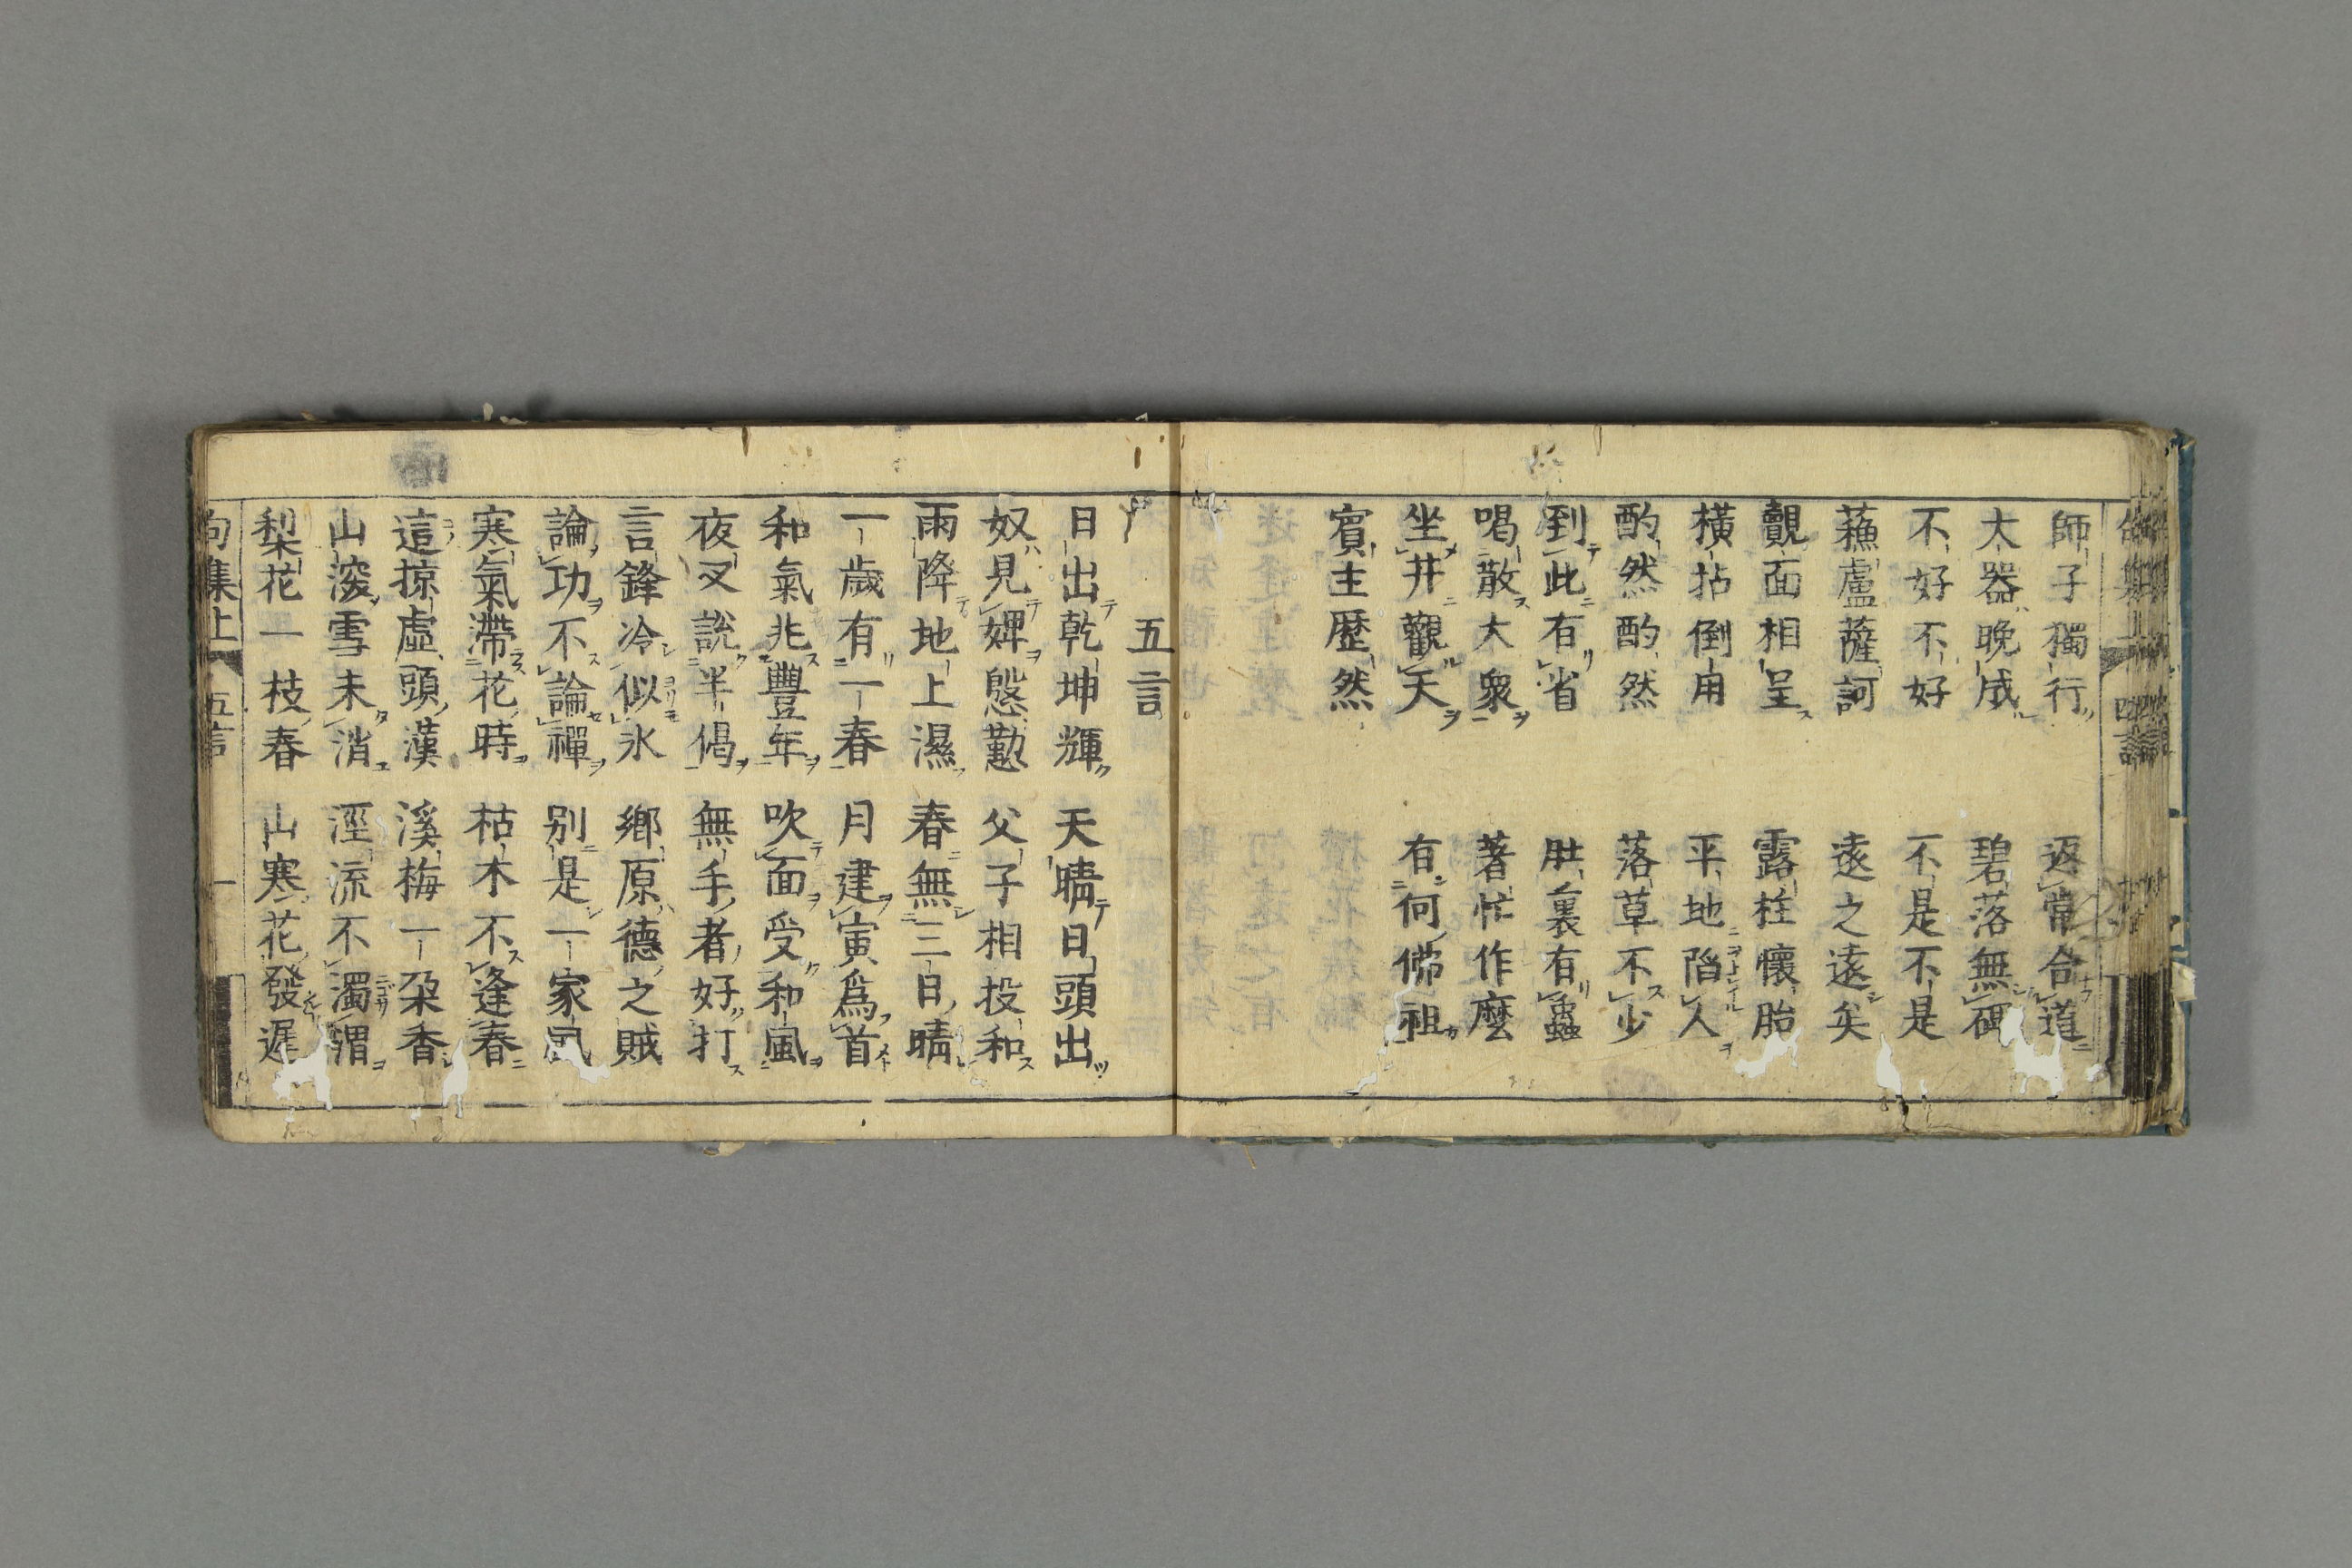 師子獨行　返常合道
大器晩成　碧落無碑
不好不好　不是不是
蘓盧薩訶　遠之遠矣
覿面相呈　露柱懷胎
橫拈倒用　平地陷人
酌然酌然　落草不少
到此有省　肚裏有蟲
喝散大衆　著忙作麼
坐井觀天　有何佛祖
賓主歷然
五言
日出乾坤輝　天晴日頭出
奴見婢慇懃　父子相投和
雨降地上濕　春無三日晴
一歲有一春　月建寅爲首
和氣兆豐年　吹面受和風
夜叉說半偈　無手者好打
言鋒冷似氷　鄉原德之賊
論功不論禪　別是一家風
寒氣滯花時　枯木不逢春
這掠虛頭漢　溪梅一朶香
山深雪未消　涇流不濁渭
梨花一枝春　山寒花發遲
句集上　五言　一